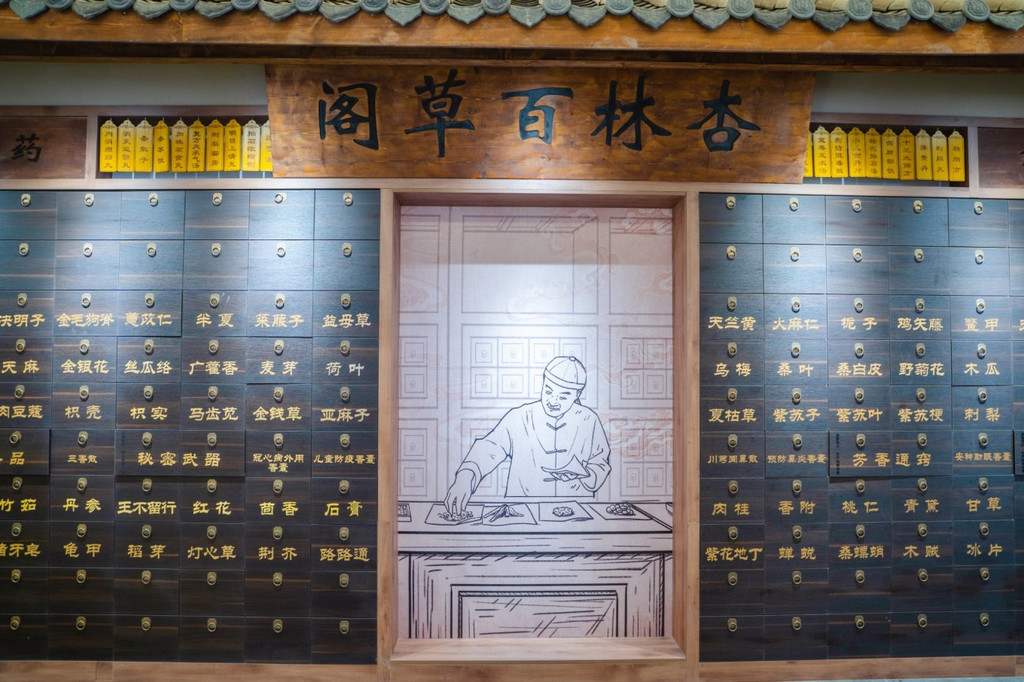 阁草百林杏
药
决明子 金毛狗脊 薏苡仁 半夏 莱菔子 益母草
天麻 金银花 丝瓜络 广藿香 麦芽 荷叶
肉豆蔻 枳壳 枳实 马齿苋 金钱草 亚麻子
品 三香散 秘密武器 冠心病外用香囊 儿童防疫香囊
竹茹 丹参 王不留行 红花 茴香 石膏
猪牙皂 龟甲 稻芽 灯心草 荆芥 路路通
天竺黄 火麻仁 栀子 鸡矢藤 鳖甲
乌梅 桑叶 桑白皮 野菊花 木瓜
夏枯草 紫苏子 紫苏叶 紫苏梗 刺梨
川芎闻鼻散 预防鼻炎香囊 芳香通窍 安神助眠香囊
肉桂 香附 桃仁 青黛 甘草
紫花地丁 蝉蜕 桑螵蛸 木贼 冰片